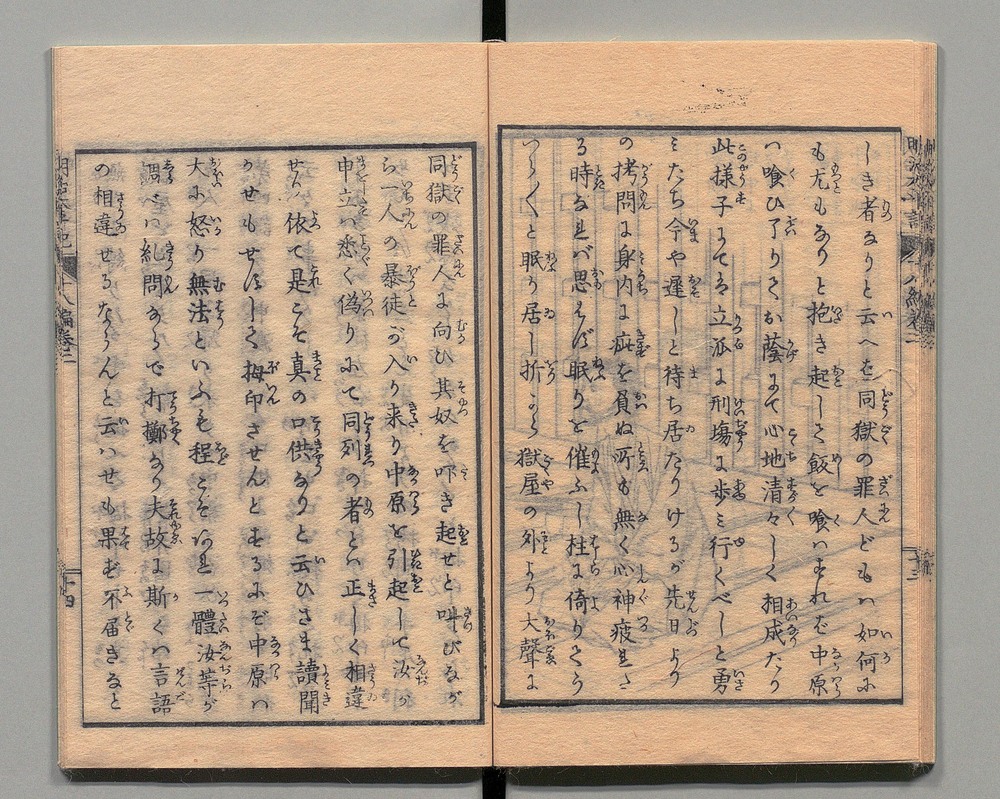 しき者なりと云へを同獄の罪人どもハ如何に
も尤もなりと抱き起して飯を喰ハすれバ中原
ハ喰ひ了りてお蔭にて心地清々しく相成たり
此様子にてハ立派に刑場に歩ミ行くべしと勇
ミたち今や遅しと待ち居たりけるが先日より
の拷問に身内に疵を負ぬ所も無く心神疲れた
る時なれバ思えず眠りを催ふし柱に倚りてう
つ／＼と眠り居し折から獄屋の外より大聲に
同獄の罪人に向ひ其奴を叩き起せと叫びなが
ら一人の暴徒が入り来り中原を引起して汝が
申立ハ悉く偽りにて同列の者とハ正しく相違
せり依て是こそ真の口供なりと云ひさま讀聞
かせもせずして拇印させんとするにぞ中原ハ
大に怒り無法といふも程こそあれ一體汝等が
調べハ糺問ならで打擲なり夫故に斯くハ言語
の相違せるならんと云ハせも果ず不届きなと
八編巻二
十四